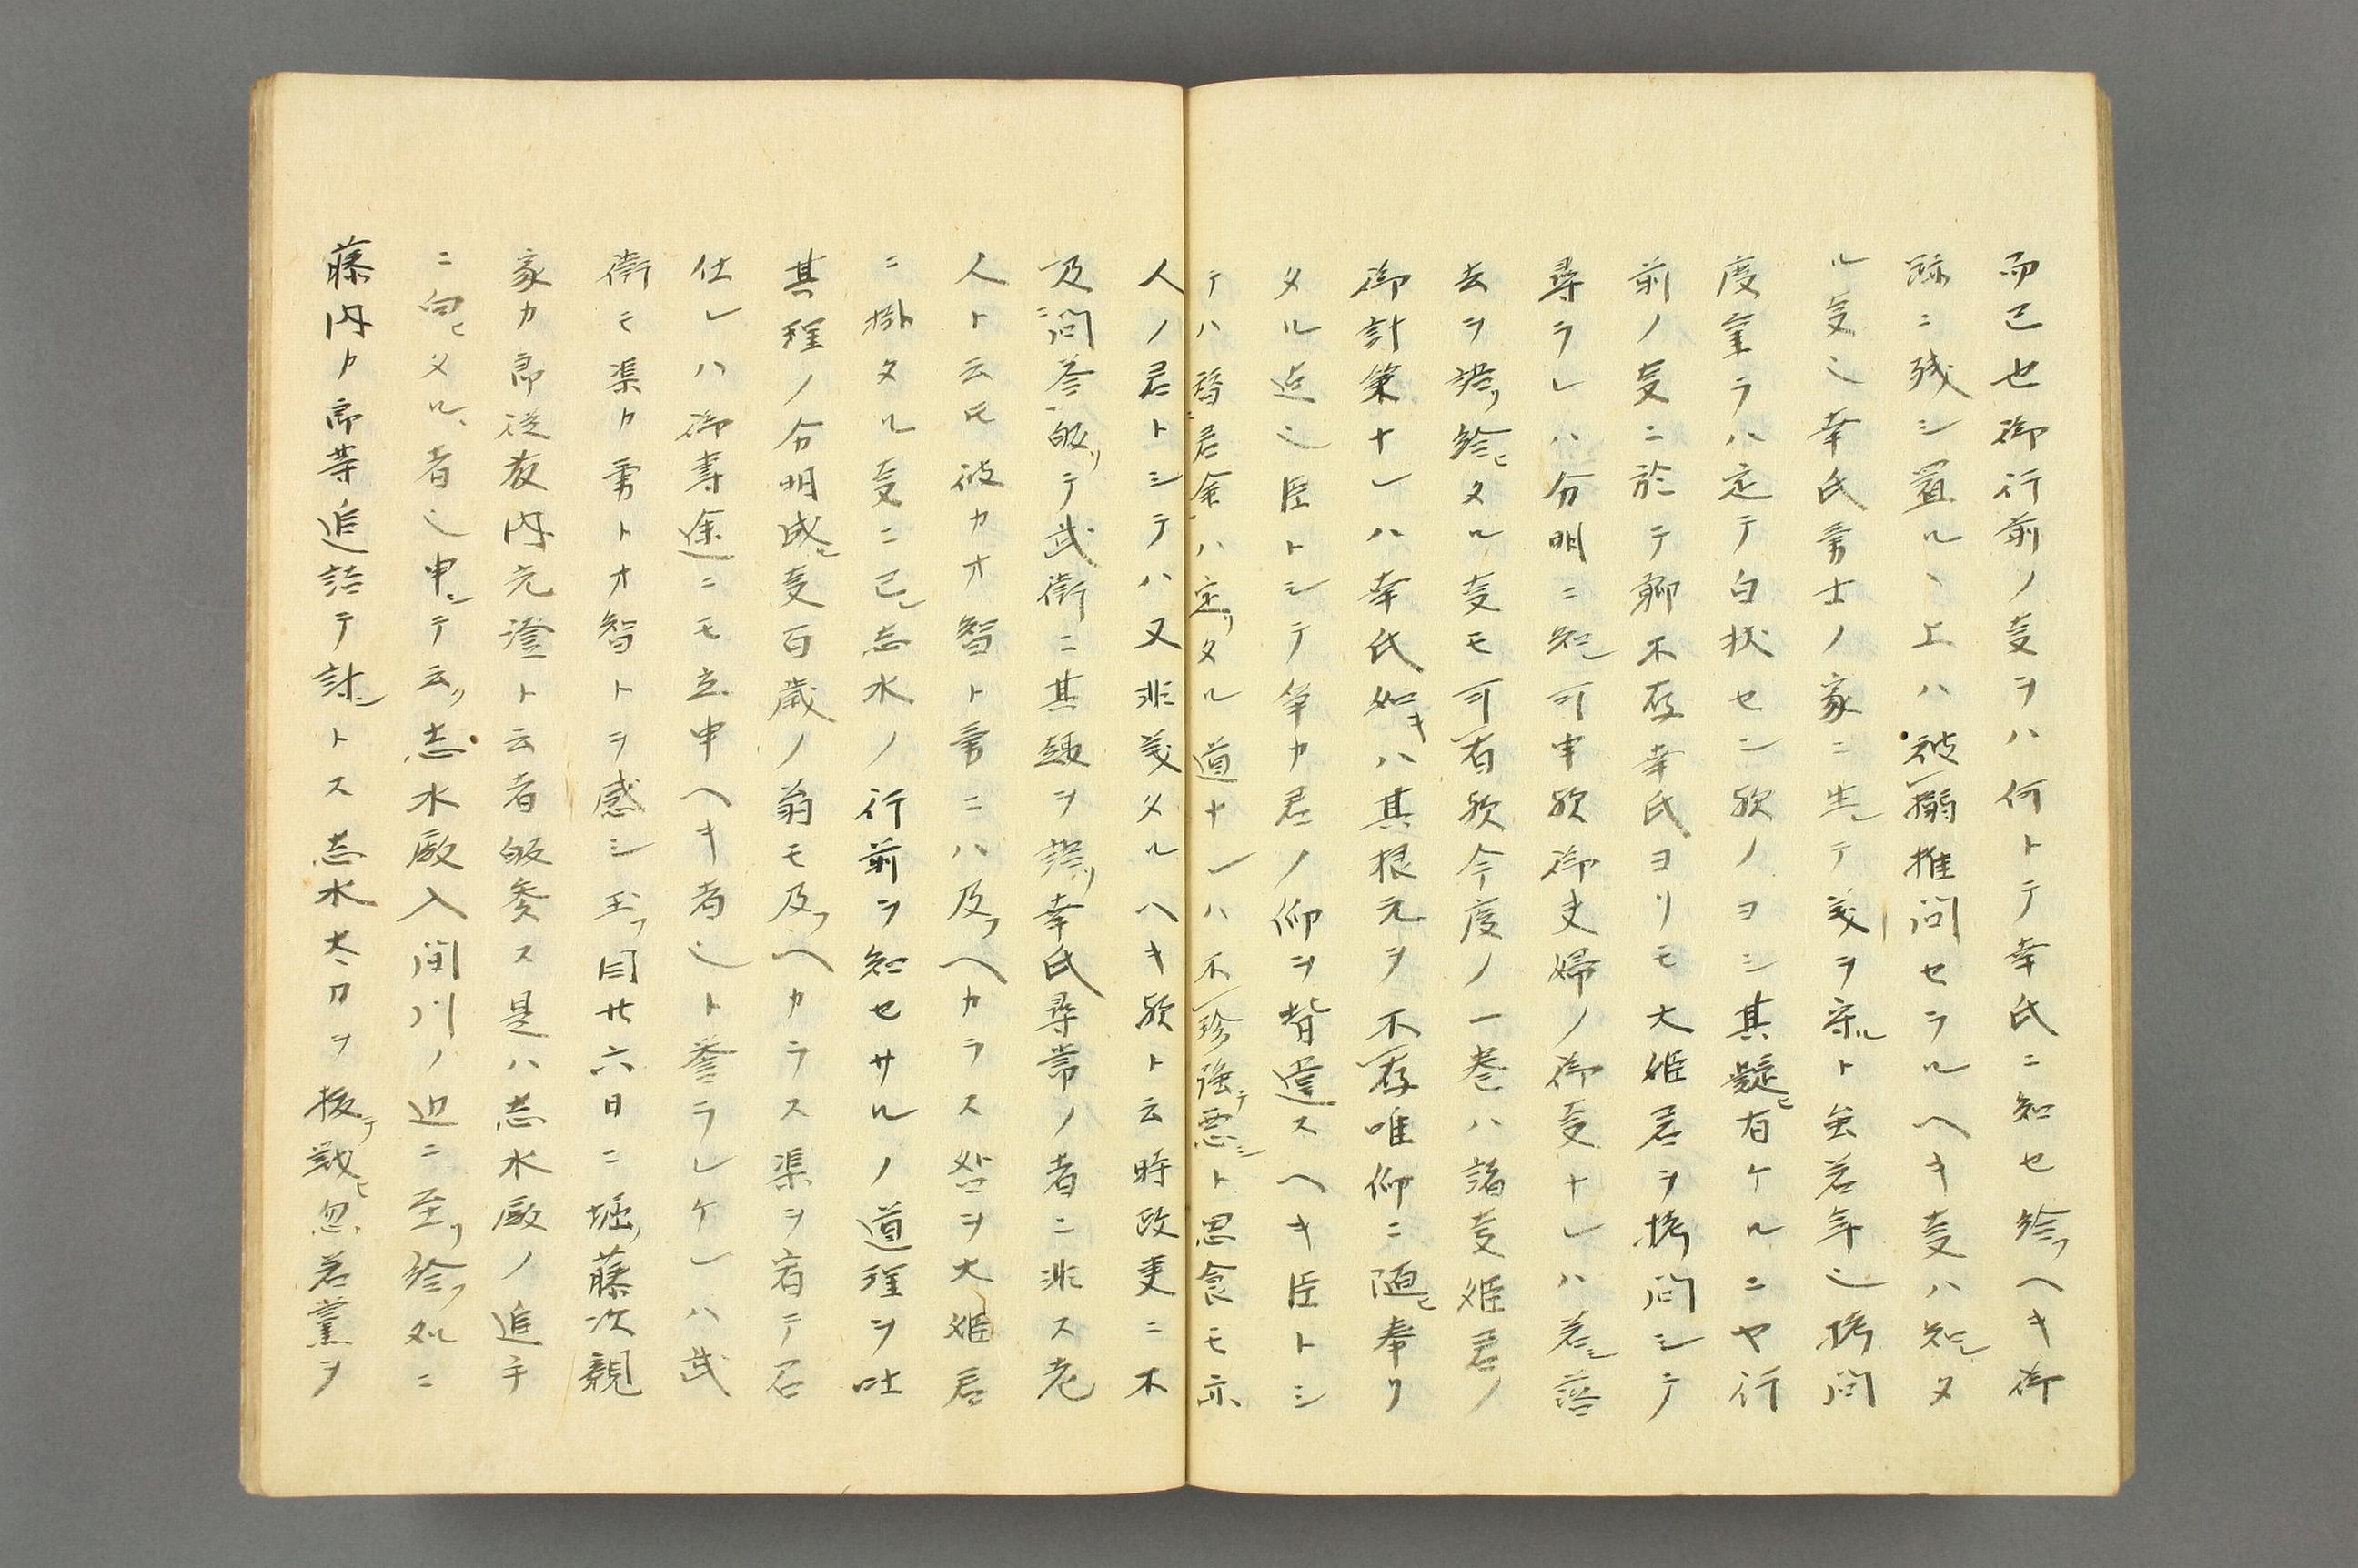 而已也御行前ノ支ヲハ何トテ幸氏ニ知セ給フヘキ御
跡ニ残シ置ルヽ上ハ被搦推問セラルヘキ支ハ知レタ
ル支也幸氏勇士ノ家ニ生レテ義ヲ守ルト虽若年也拷問
度重ラハ定テ白状セン欤ノヨシ其疑ヒ有ケルニヤ行
前ノ支ニ於テ聊不存幸氏ヨリモ大姫君ヲ拷問シテ
尋ラレハ分明ニ知レ可申欤御夫婦ノ御支ナレハ若シ落
去ヲ語リ給ヒタル支モ可有欤今度ノ一巻ハ諸支姫君ノ
御計策ナレハ幸氏如キハ其根元ヲ不存唯仰ニ随ヒ奉リ
タル迄也臣トシテ争カ君ノ仰ヲ背違スヘキ臣トシ
テハ替君命ハ定リタル道ナレハ不珍強テ悪シト思食モ亦
人ノ君トシテハ又非義タルヘキ欤ト云時政更ニ不
及問答皈リテ武衛ニ其趣ヲ語リ幸氏尋常ノ者ニ非ス老
人ト云氏彼カオ智ト勇ニハ及フヘカラス咎ヲ大姫君
ニ掛タル支ニ己レ志水ノ行前ヲ知セサルノ道理ヲ吐
其理ノ分明成ヒ支百歳ノ翁モ及フヘカラス渠ヲ宥テ召
仕レハ御壽途ニモ立申ヘキ者也ト答ラレケレハ武
衛モ渠カ勇トオ智トヲ感シ玉フ同廿六日ニ堀藤次親
家カ郎従友内光澄ト云者皈参ス是ハ志水殿ノ追手
ニ向ヒタル者也申シテ云リ志水殿入間川ノ辺ニ至リ給フ処ニ
藤内カ郎等追詰テ討レトス志水太刀ヲ抜テ戦ヒ忽若黨ヲ